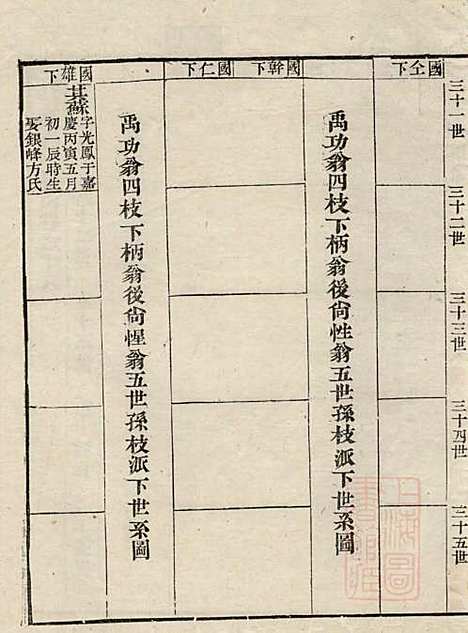 三十一世
三十二世
三十三世
三十四世
三十五世
國仝下
禹功翁四枝下柄翁後尙性翁五世孫枝派下世系圖
國幹下
國仁下
禹功翁四枝下柄翁後尙惺翁五世孫枝派下世系圖
國雄下
其蘇
字光鳳于嘉
慶丙寅五月
初一辰時生
娶銀峰方氏
上海圖